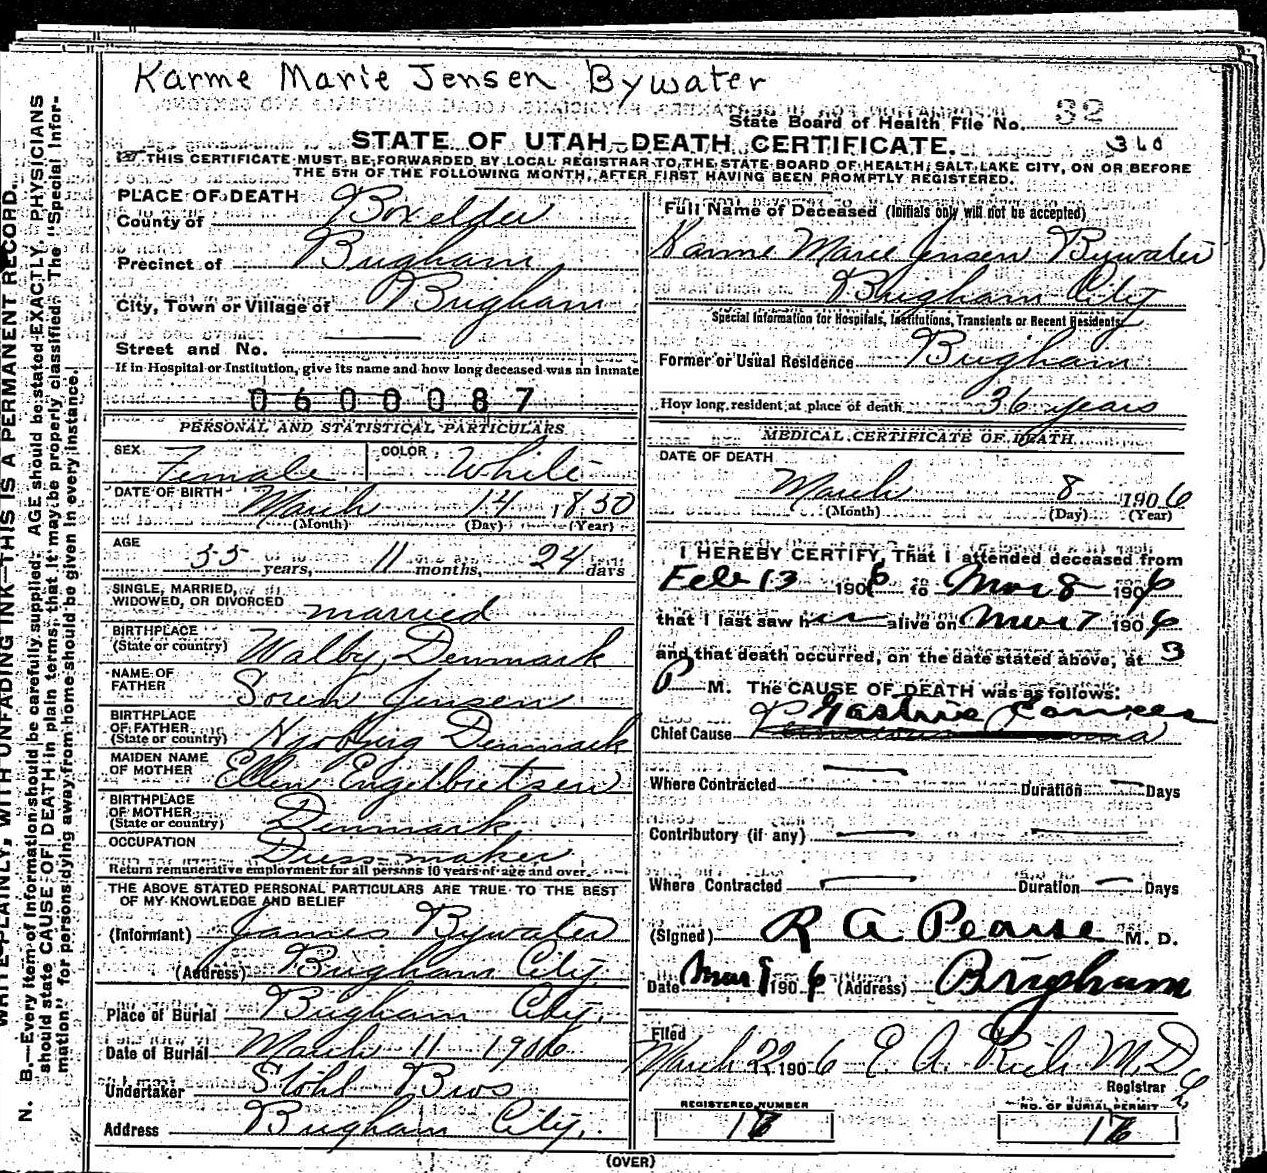 Karme Marie Jensen Bywater
State Board of Health File No. 32
STATE OF UTAH—DEATH CERTIFICATE. 360
THIS CERTIFICATE MUST BE FORWARDED BY LOCAL REGISTRAR TO THE STATE BOARD OF HEALTH, SALT LAKE CITY, ON OR BEFORE
THE 5TH OF THE FOLLOWING MONTH, AFTER FIRST HAVING BEEN PROMPTLY REGISTERED.
PLACE OF DEATH
County of Boxelder
Precinct of Brigham
City, Town or Village of Brigham
Street and No.
If in Hospital or Institution, give its name and how long deceased was an inmate
0600087
PERSONAL AND STATISTICAL PARTICULARS
SEX Female COLOR White
DATE OF BIRTH March 14 1850
(Month) (Day) (Year)
AGE 55 years, 11 months, 24 days
SINGLE, MARRIED,
WIDOWED, OR DIVORCED married
BIRTHPLACE
(State or country) Walby, Denmark
NAME OF
FATHER Soren Jensen
BIRTHPLACE
OF FATHER
(State or country) Denmark
MAIDEN NAME
OF MOTHER Ellen Engelbretsen
BIRTHPLACE
OF MOTHER
(State or country) Denmark
OCCUPATION Dress-maker
Return remunerative employment for all persons 10 years of age and over.
THE ABOVE STATED PERSONAL PARTICULARS ARE TRUE TO THE BEST
OF MY KNOWLEDGE AND BELIEF
(Informant) James Bywater
(Address) Brigham City
Place of Burial Brigham City.
Date of Burial March 11 1906
Undertaker Stohl Bros
Address Brigham City.
Full Name of Deceased (Initials only will not be accepted)
Karme Marie Jensen Bywater
Brigham City
Special Information for Hospitals, Institutions, Transients or Recent Residents
Former or Usual Residence Brigham
How long resident at place of death 36 years
MEDICAL CERTIFICATE OF DEATH
DATE OF DEATH
March 8 1906
(Month) (Day) (Year)
I HEREBY CERTIFY, That I attended deceased from
Feb 13 1906 to Mar 8 1906
that I last saw her alive on Mar 7 1906
and that death occurred, on the date stated above, at 3
P M. The CAUSE OF DEATH was as follows:
Gastric Cancer
Chief Cause
Where Contracted Duration Days
Contributory (if any)
Where Contracted Duration Days
(Signed) R A Pearse M. D.
Date Mar 9 1906 (Address) Brigham
Filed
March 22 1906 E. A. Rich M.D.
Registrar
REGISTERED NUMBER NO. OF BURIAL PERMIT
(OVER)
WRITE PLAINLY, WITH UNFADING INK—THIS IS A PERMANENT RECORD.
N. B.—Every item of information should be carefully supplied. AGE should be stated EXACTLY. PHYSICIANS
should state CAUSE OF DEATH in plain terms, that it may be properly classified. The "Special Infor-
mation" for persons dying away from home should be given in every instance.